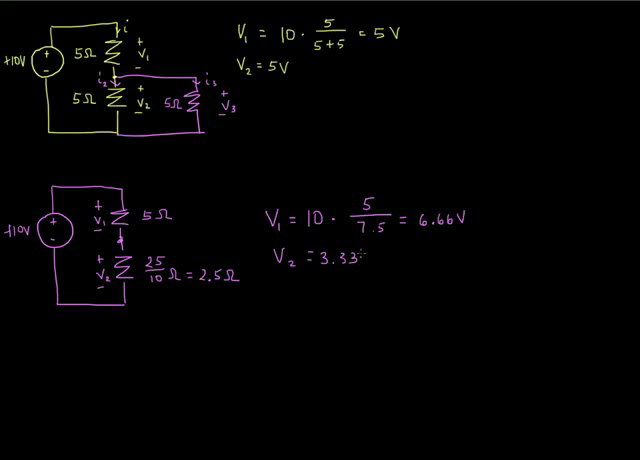 i
+10V
+
-
5Ω
+
V₁
-
i₂
i₃
5Ω
+
V₂
-
5Ω
+
V₃
-
V₁ = 10 · 5/(5+5) = 5 V
V₂ = 5V
+10V
+
-
+
V₁
-
5Ω
+
V₂
-
25/10 Ω = 2.5Ω
V₁ = 10 · 5/7.5 = 6.66V
V₂ = 3.33